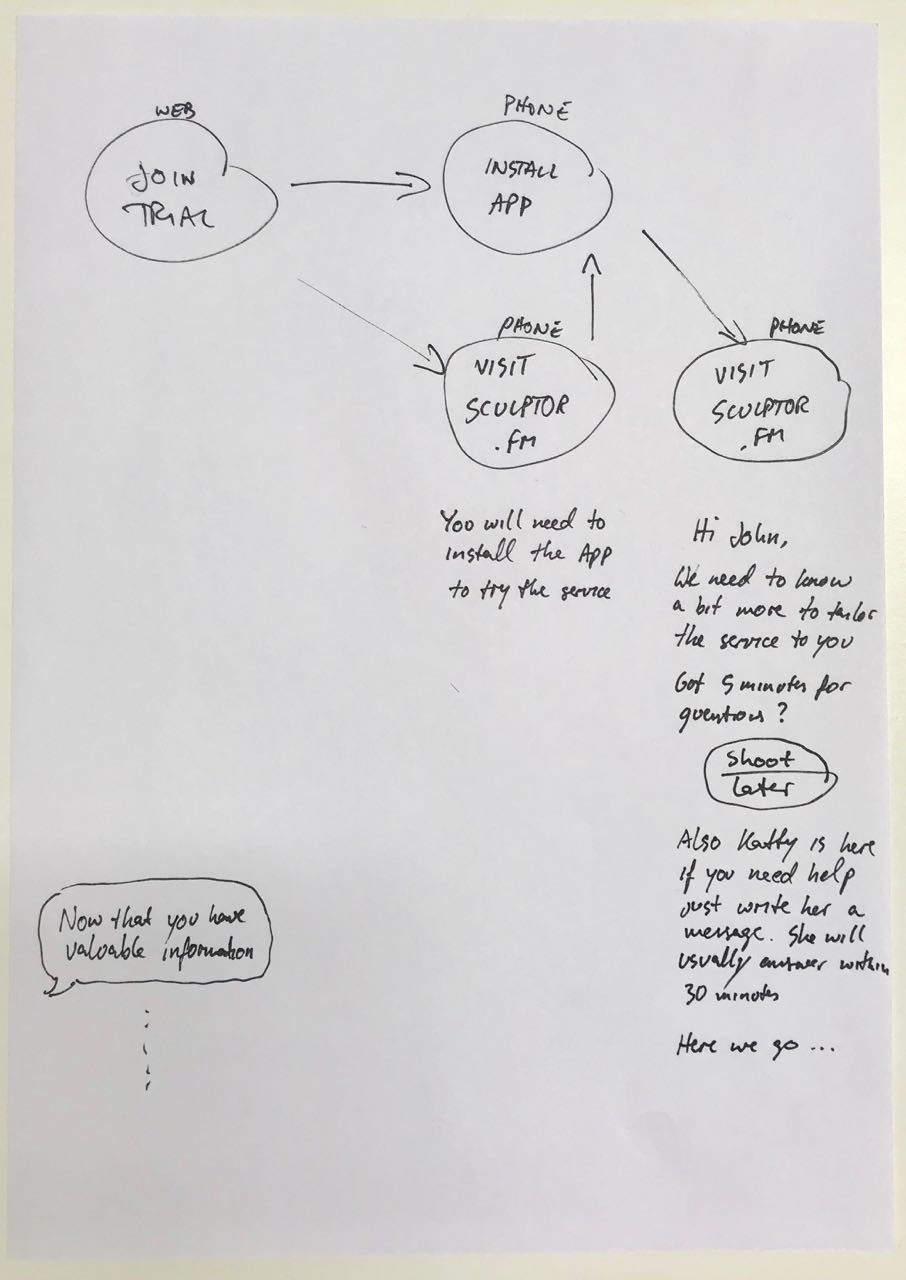 WEB
JOIN
TRIAL
PHONE
INSTALL
APP
PHONE
VISIT
SCULPTOR
.FM
PHONE
VISIT
SCULPTOR
.FM
You will need to
install the App
to try the service
Hi John,
We need to know
a bit more to tailor
the service to you
Got 5 minutes for
questions?
Shoot
Later
Also Kathy is here
if you need help
Just write her a
message. She will
usually answer within
30 minutes
Here we go ...
Now that you have
valuable information